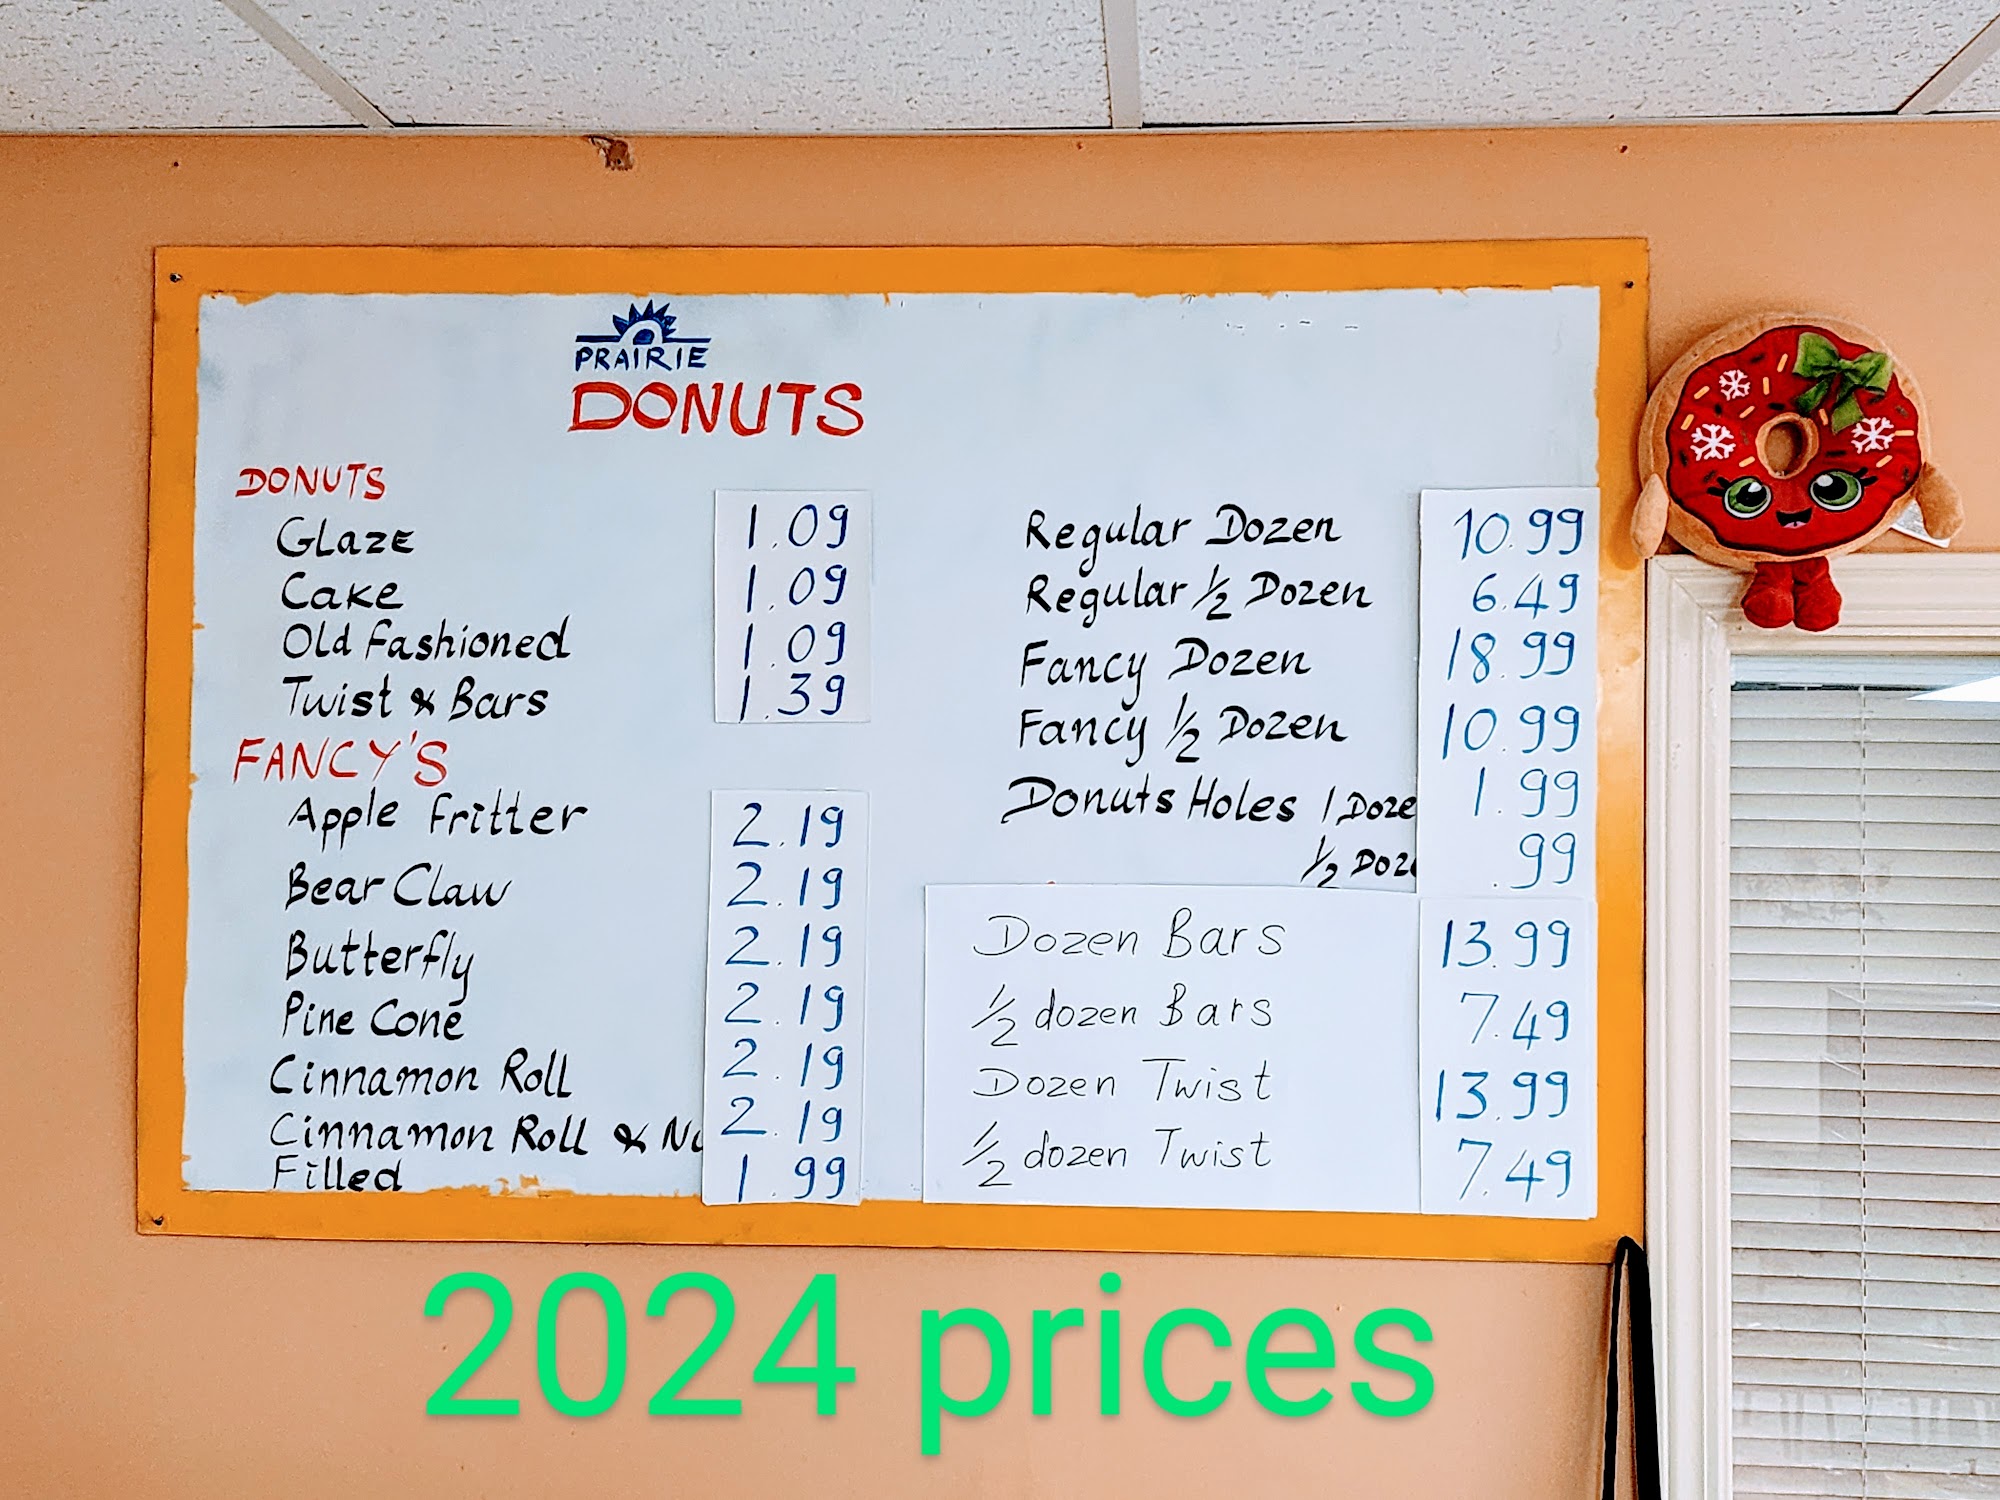 PRAIRIE
DONUTS
DONUTS
Glaze 1.09
Cake 1.09
Old Fashioned 1.09
Twist & Bars 1.39
FANCY'S
Apple Fritter 2.19
Bear Claw 2.19
Butterfly 2.19
Pine Cone 2.19
Cinnamon Roll 2.19
Cinnamon Roll & 2.19
Filled 1.99
Regular Dozen 10.99
Regular 1/2 Dozen 6.49
Fancy Dozen 18.99
Fancy 1/2 Dozen 10.99
Donuts Holes 1 Doze 1.99
1/2 Doze .99
Dozen Bars 13.99
1/2 dozen Bars 7.49
Dozen Twist 13.99
1/2 dozen Twist 7.49
2024 prices